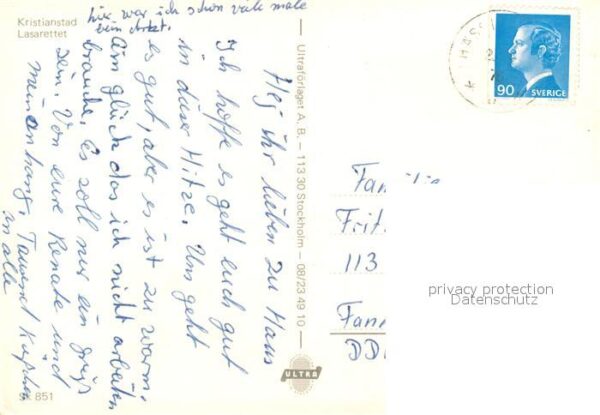 Kristianstad
Lasarettet
hier war ich schon viele male
beim Arzt.
Hej ihr lieben zu Haus
Ich hoffe es geht euch gut
in dieser Hitze. Uns geht
es gut, aber es ist zu warm.
Am glück das ich nicht arbeiten
brauche. Es soll nur ein gruß
sein. Von eure Renate und
anhang. Tausend Küsschen
an alle
SK 851
Ultraförlaget A. B. — 113 30 Stockholm — 08/23 49 10
ULTRA
90 SVERIGE
Fam
Frit
113
Fan
DD
privacy protection
Datenschutz